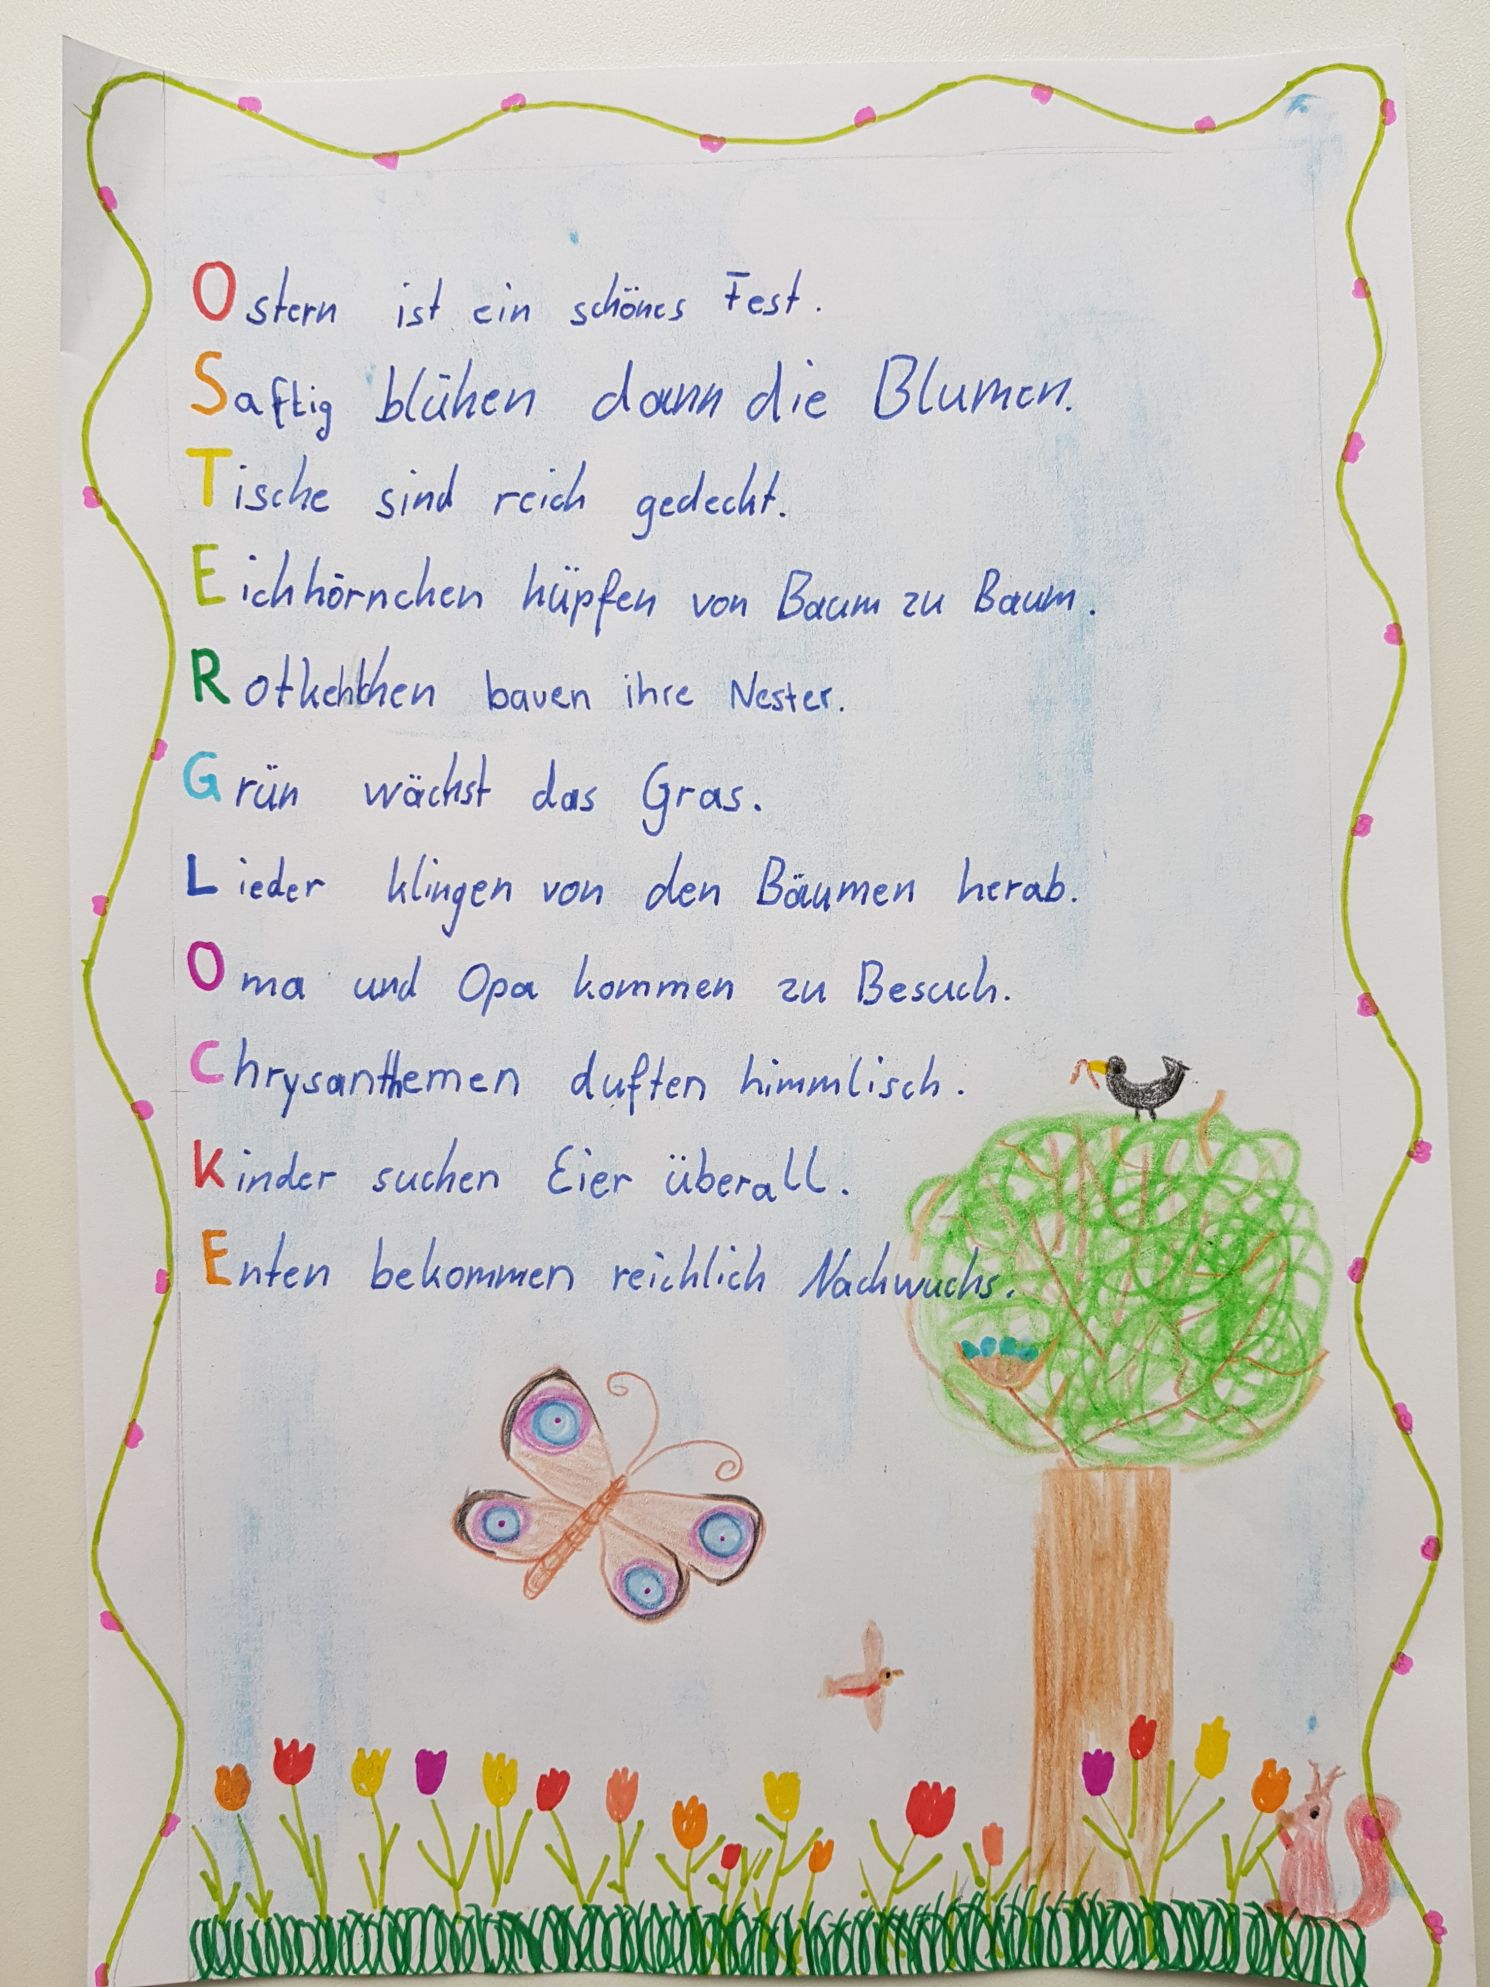 Ostern ist ein schönes Fest.
Saftig blühen dann die Blumen.
Tische sind reich gedeckt.
Eichhörnchen hüpfen von Baum zu Baum.
Rotkehlchen bauen ihre Nester.
Grün wächst das Gras.
Lieder klingen von den Bäumen herab.
Oma und Opa kommen zu Besuch.
Chrysanthemen duften himmlisch.
Kinder suchen Eier überall.
Enten bekommen reichlich Nachwuchs.